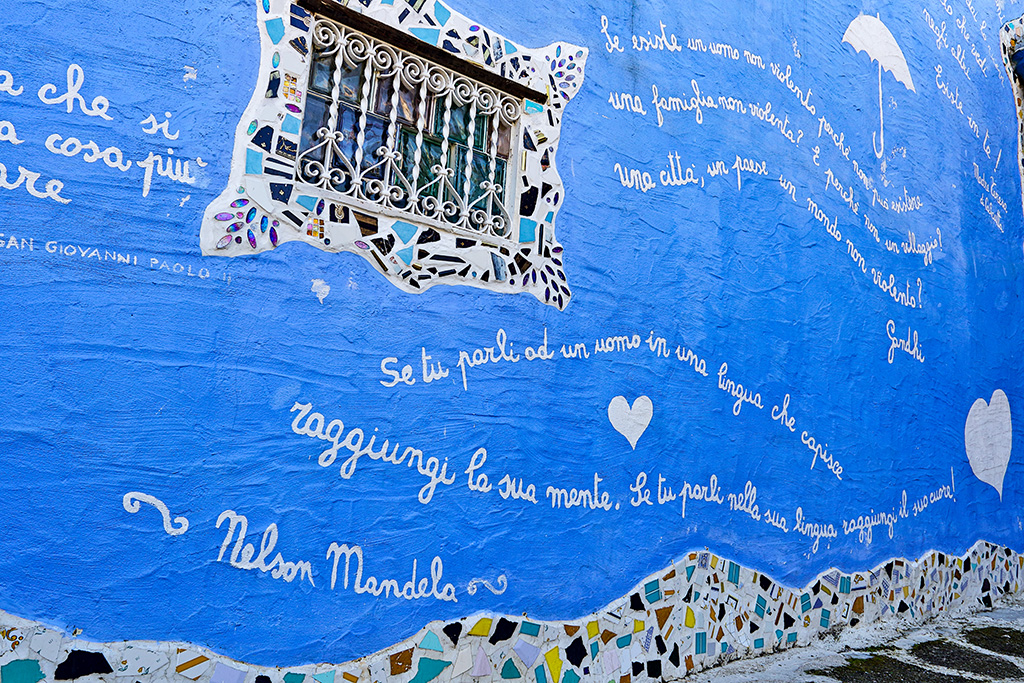 a che
si
a cosa più
are
SAN GIOVANNI PAOLO II
Se esiste un uomo non violento perché non può esistere
una famiglia non violenta? E perché non un villaggio?
Una città, un paese un mondo non violento?
Gandhi
negli altri
Esiste in te!
Madre Teresa
di Calcutta
Se tu parli ad un uomo in una lingua che capisce
raggiungi la sua mente. Se tu parli nella sua lingua raggiungi il suo cuore!
Nelson Mandela